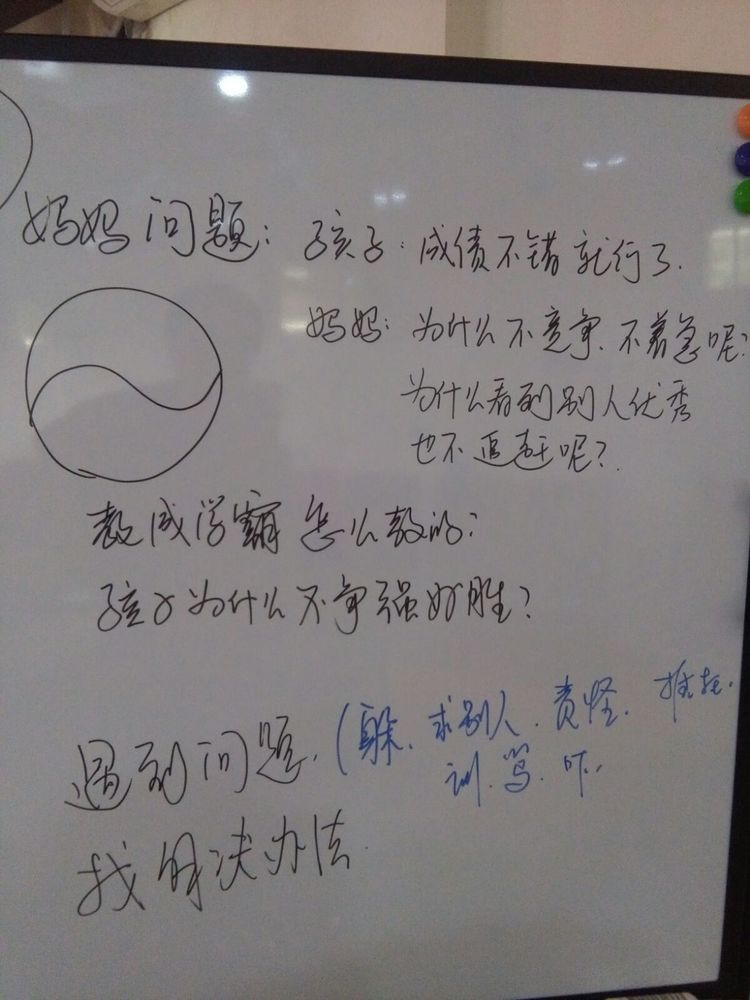 妈妈问题：孩子：成绩不错就行了.
妈妈：为什么不竞争、不着急呢?
为什么看到别人优秀
也不追赶呢?
教成学霸怎么教的?
孩子为什么不争强好胜?
遇到问题.（躲、求别人、责怪、推托.
训、骂、吓.
找解决办法.